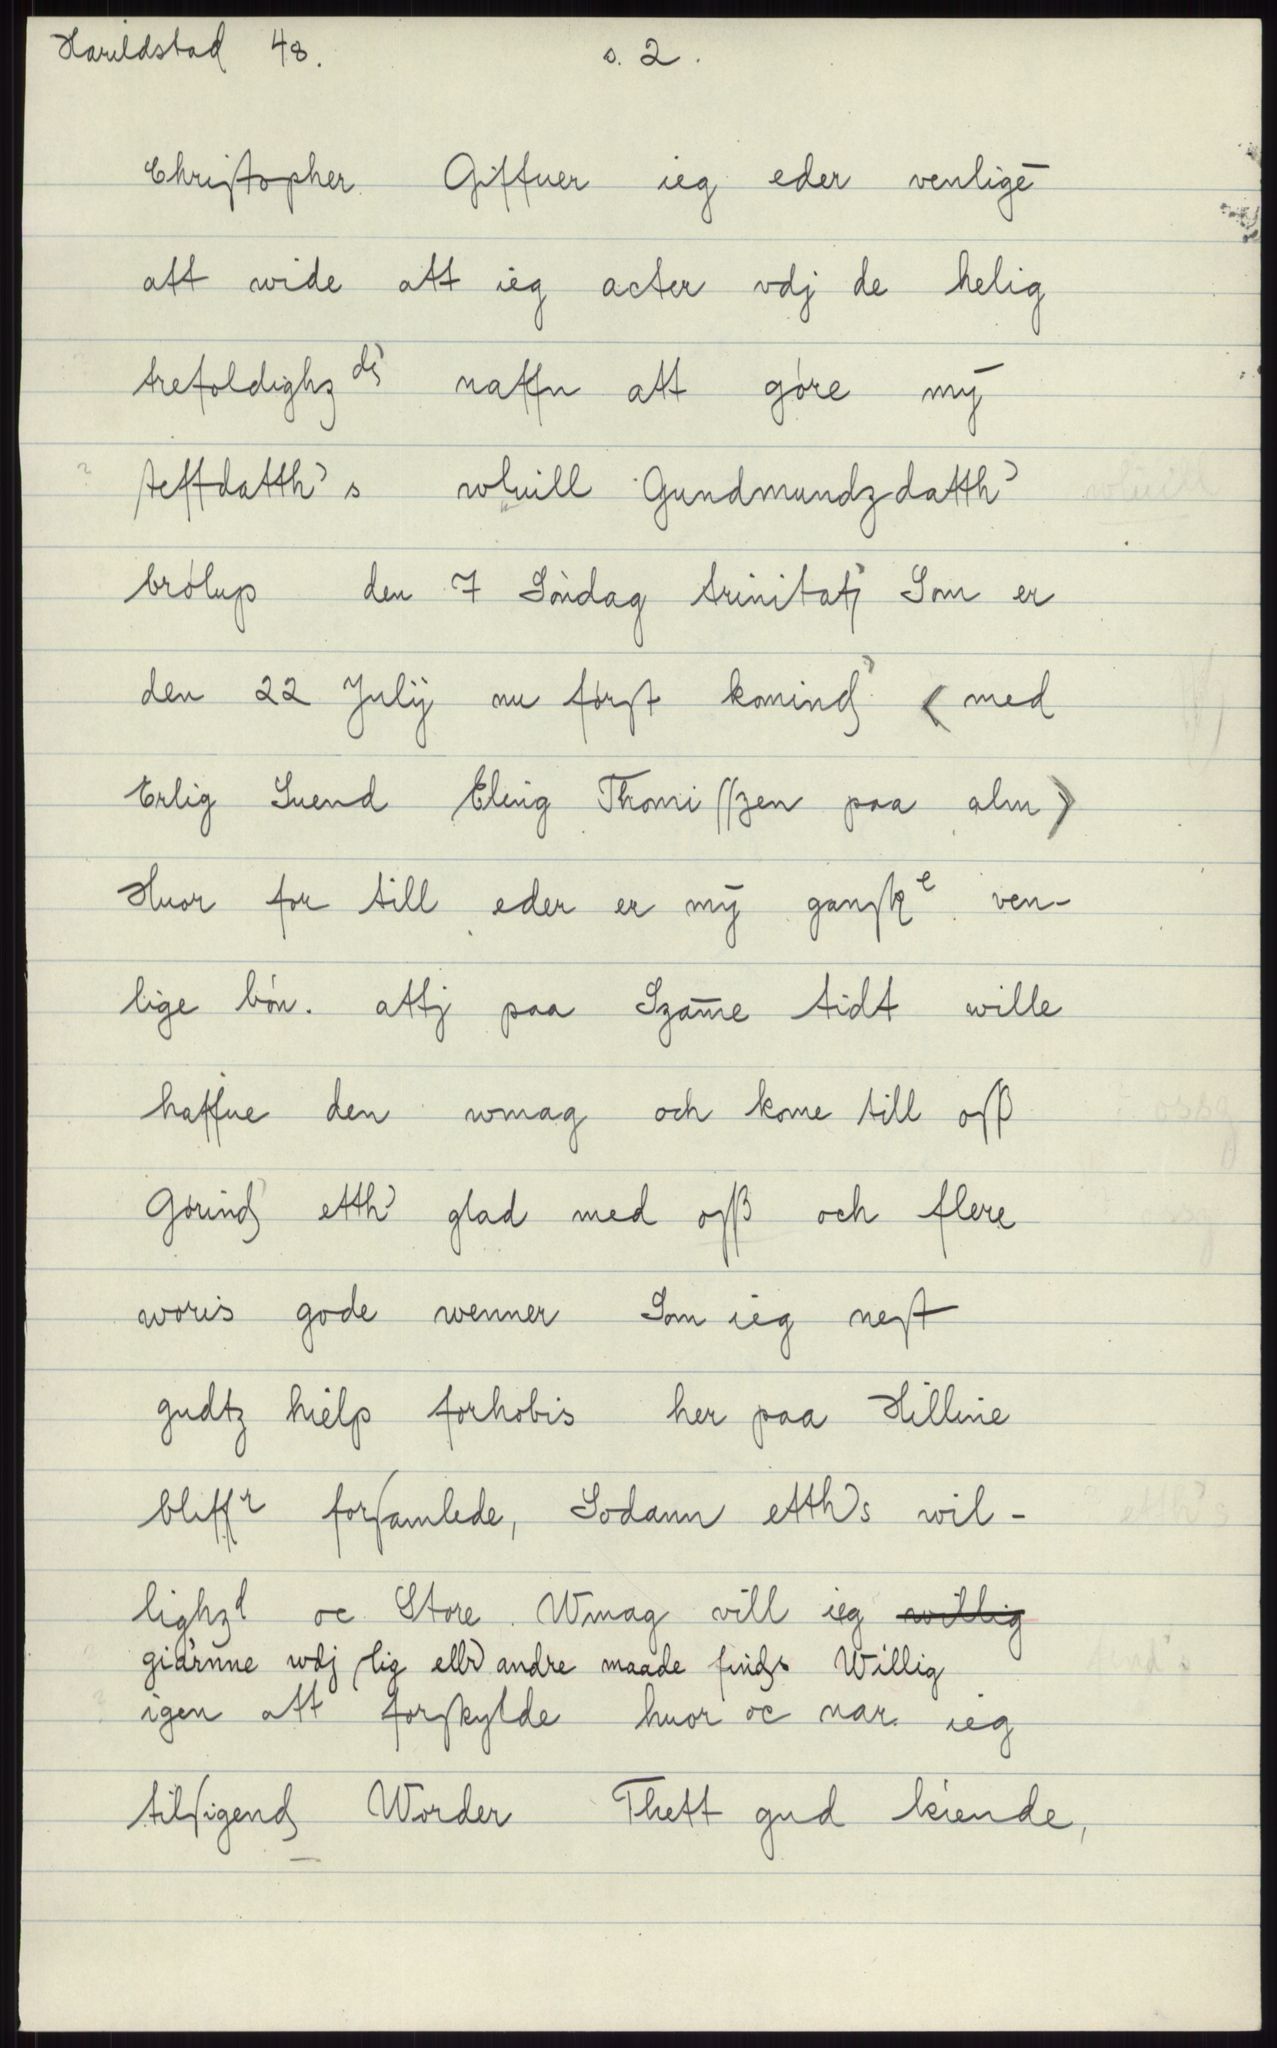 Harildstad 48. s. 2.
Christopher Giffuer ieg eder venligē
att wide att ieg acter vdj de helig
trefoldighz dꝭ naffn att göre mȳ
steffdatth's whuill Gundmundzdatth'
brólup den 7 Sóndag trinitatꝭ Som er
den 22 Julij nu først kominꝭ < med
Erlig Suend Eling Thomiſſzen paa alm >
Huor for till eder er mȳ ganſkᵉ ven-
lige bón. attj paa Szam̄e tidt wille
haffue den wmag och kome till oſß
Górindꝭ etth' glad med oſß och flere
woris gode wenner Som ieg neſt
gudtz hielp forhobis her paa Hilline
bliffʳ forſamlede, Sodann etth's wil-
lighzᵈ oc Store Wmag vill ieg ~~willig~~
giärnne wdj ſlig ellr andre maade findꝭs Willig
igen att forſkylde huor oc nar ieg
tilſigendꝭ Worder Thett gud kiende,